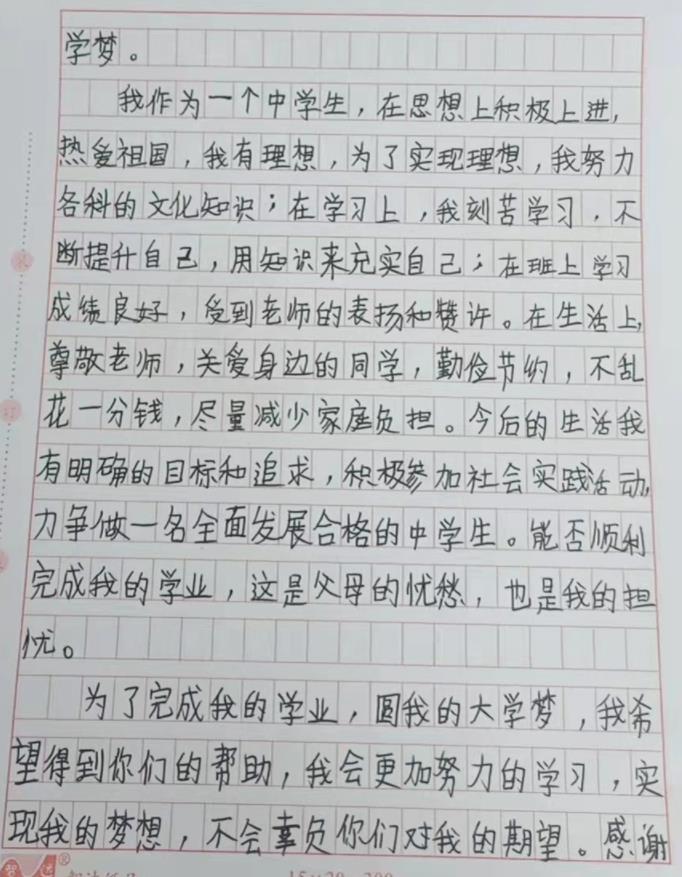 学梦。
我作为一个中学生，在思想上积极上进，
热爱祖国，我有理想，为了实现理想，我努力
各科的文化知识；在学习上，我刻苦学习，不
断提升自己，用知识来充实自己；在班上学习
成绩良好，受到老师的表扬和赞许。在生活上，
尊敬老师，关爱身边的同学，勤俭节约，不乱
花一分钱，尽量减少家庭负担。今后的生活我
有明确的目标和追求，积极参加社会实践活动，
力争做一名全面发展合格的中学生。能否顺利
完成我的学业，这是父母的忧愁，也是我的担
忧。
为了完成我的学业，圆我的大学梦，我希
望得到你们的帮助，我会更加努力的学习，实
现我的梦想，不会辜负你们对我的期望。感谢